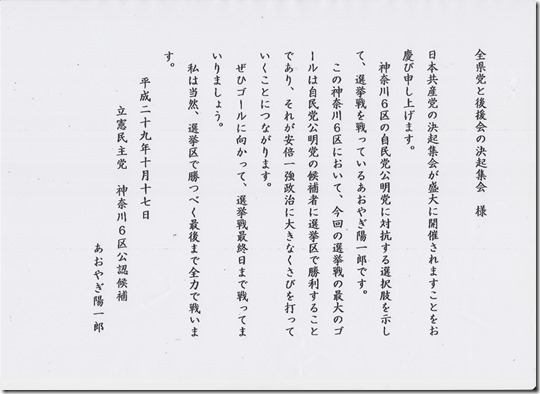 全県党と後援会の決起集会　様
日本共産党の決起集会が盛大に開催されますことをお
慶び申し上げます。
神奈川６区の自民党公明党に対抗する選択肢を示し
て、選挙戦を戦っているあおやぎ陽一郎です。
この神奈川６区において、今回の選挙戦の最大のゴ
ールは自民党公明党の候補者に選挙区で勝利すること
であり、それが安倍一強政治に大きなくさびを打って
いくことにつながります。
ぜひゴールに向かって、選挙戦最終日まで戦ってま
いりましょう。
私は当然、選挙区で勝つべく最後まで全力で戦いま
す。
平成二十九年十月十七日
立憲民主党　神奈川６区公認候補
あおやぎ陽一郎